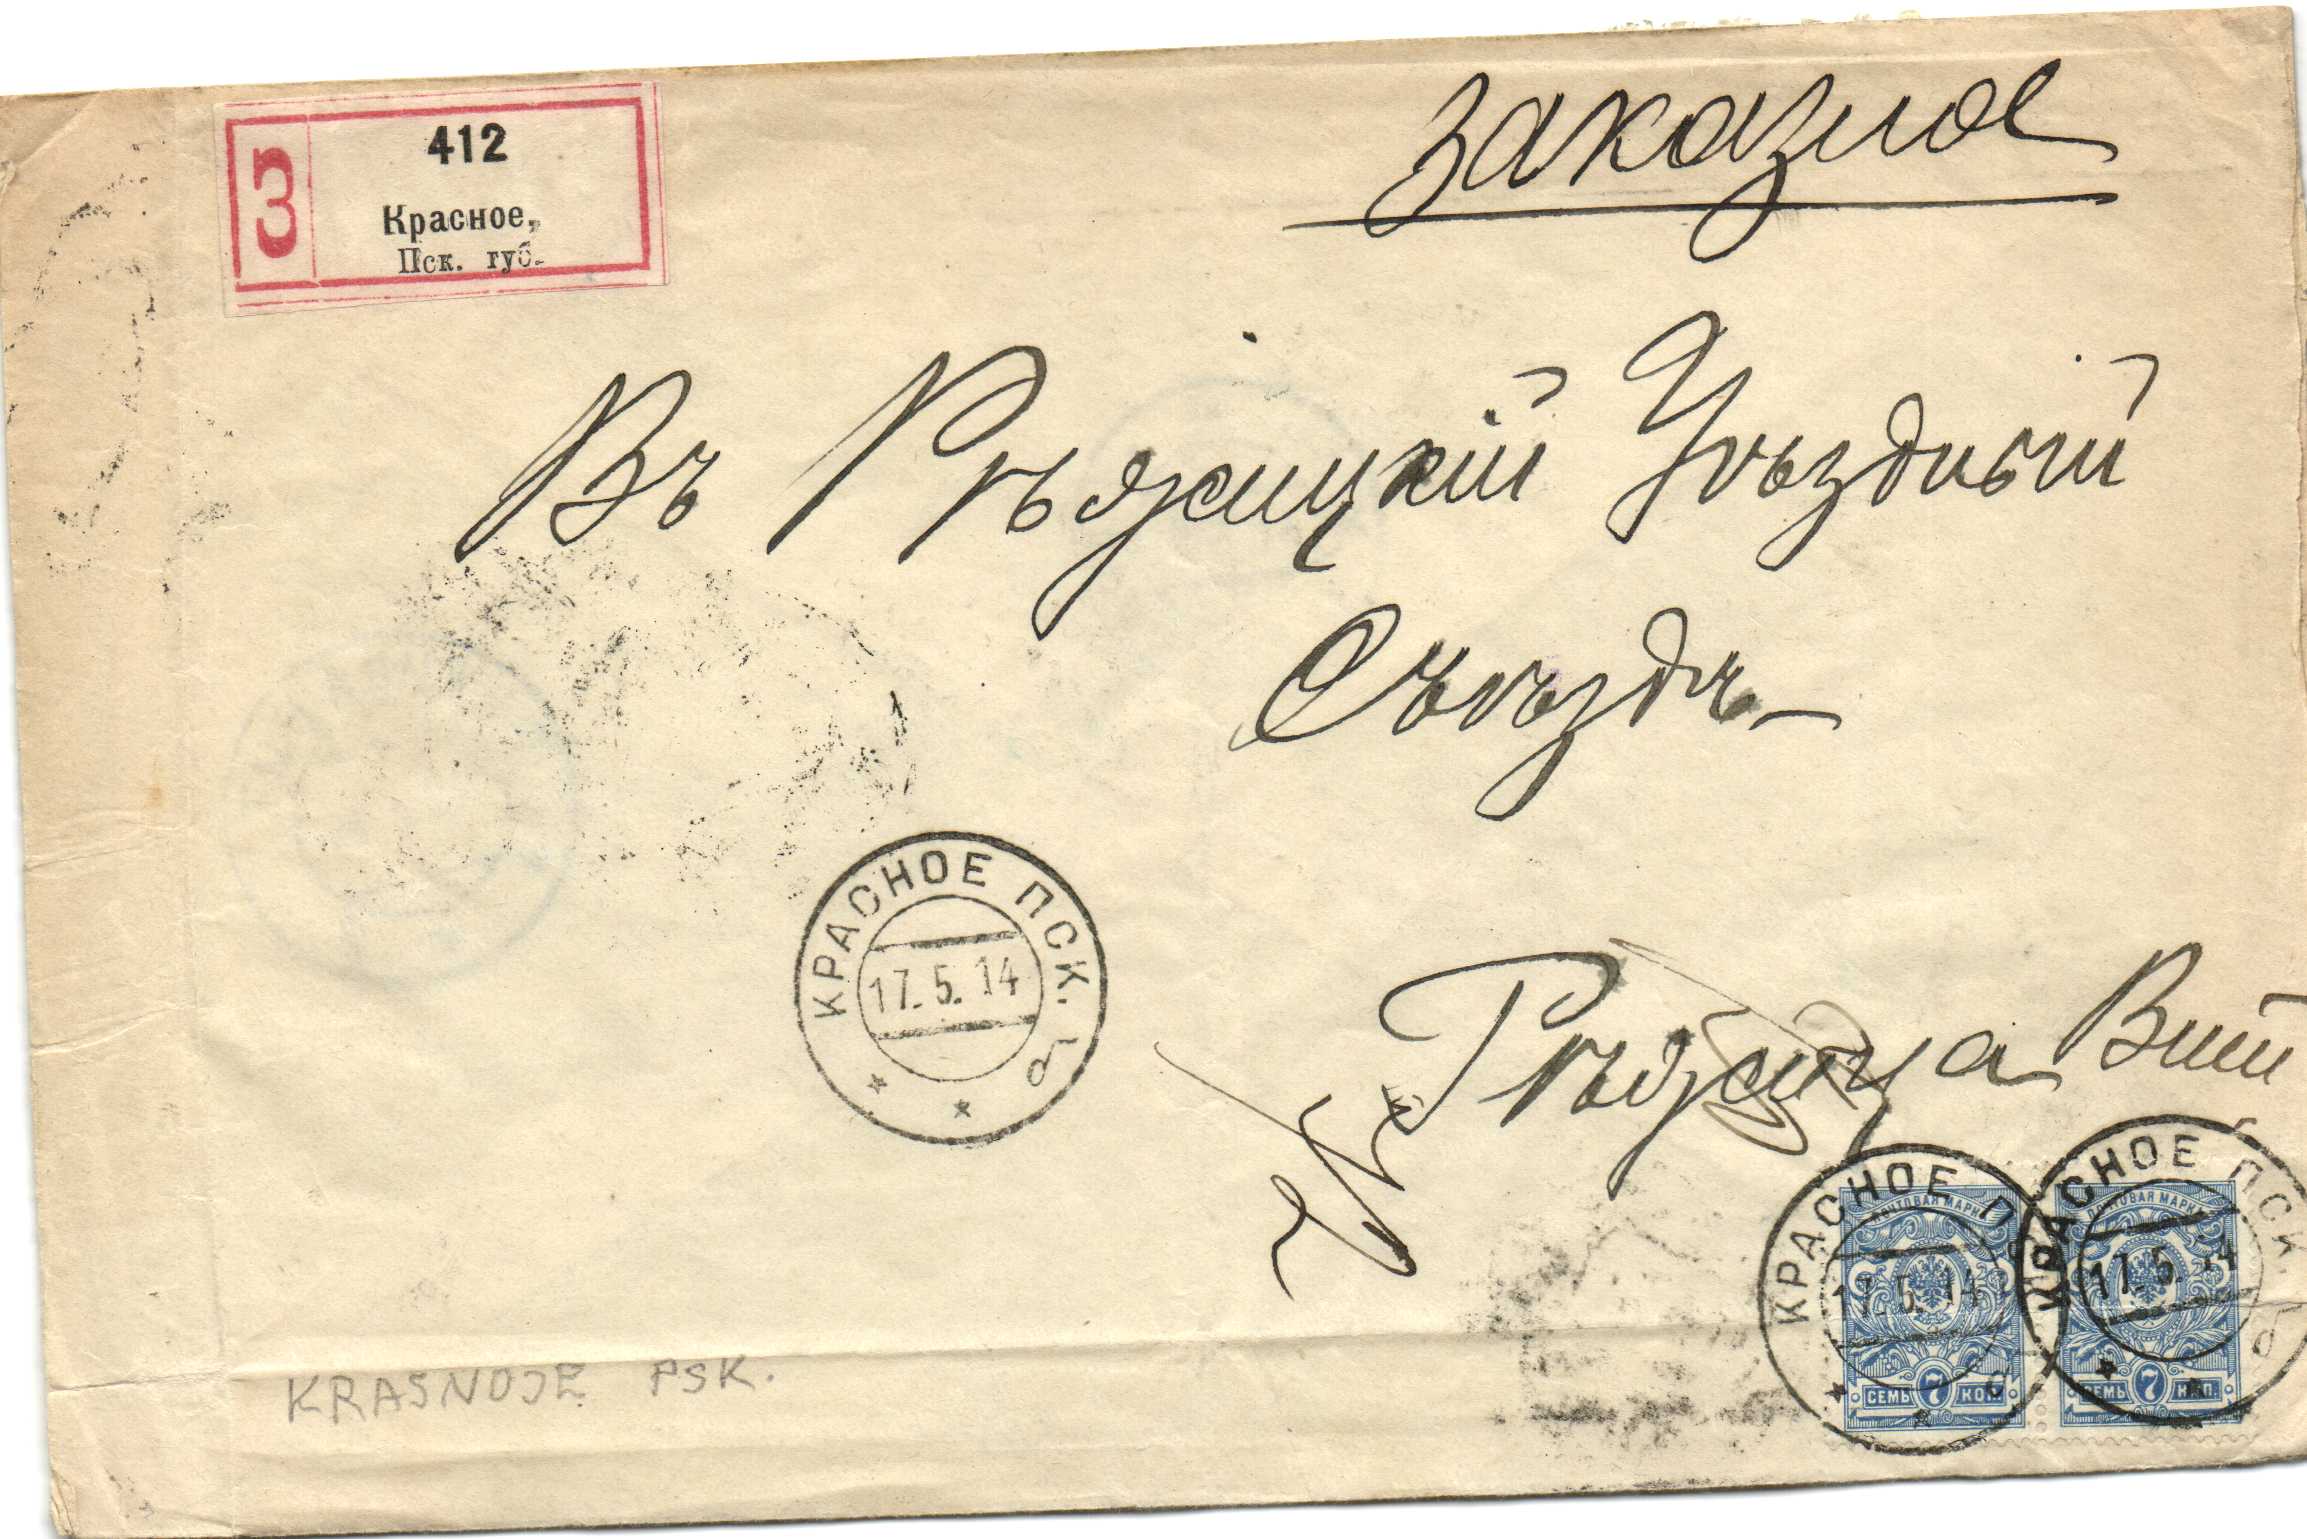 заказное
З
412
Красное,
Пск. губ.
Въ Рѣжицкій Уѣздный
Съѣздъ
КРАСНОЕ ПСК. б
17.5.14
Рѣжица Вит
КРАСНОЕ П
17.5.14
КРАСНОЕ ПСК б
17.5.14
ПОЧТОВАЯ МАРКА
СЕМЬ 7 КОП.
ПОЧТОВАЯ МАРКА
СЕМЬ 7 КОП.
KRASNOJE PSK.